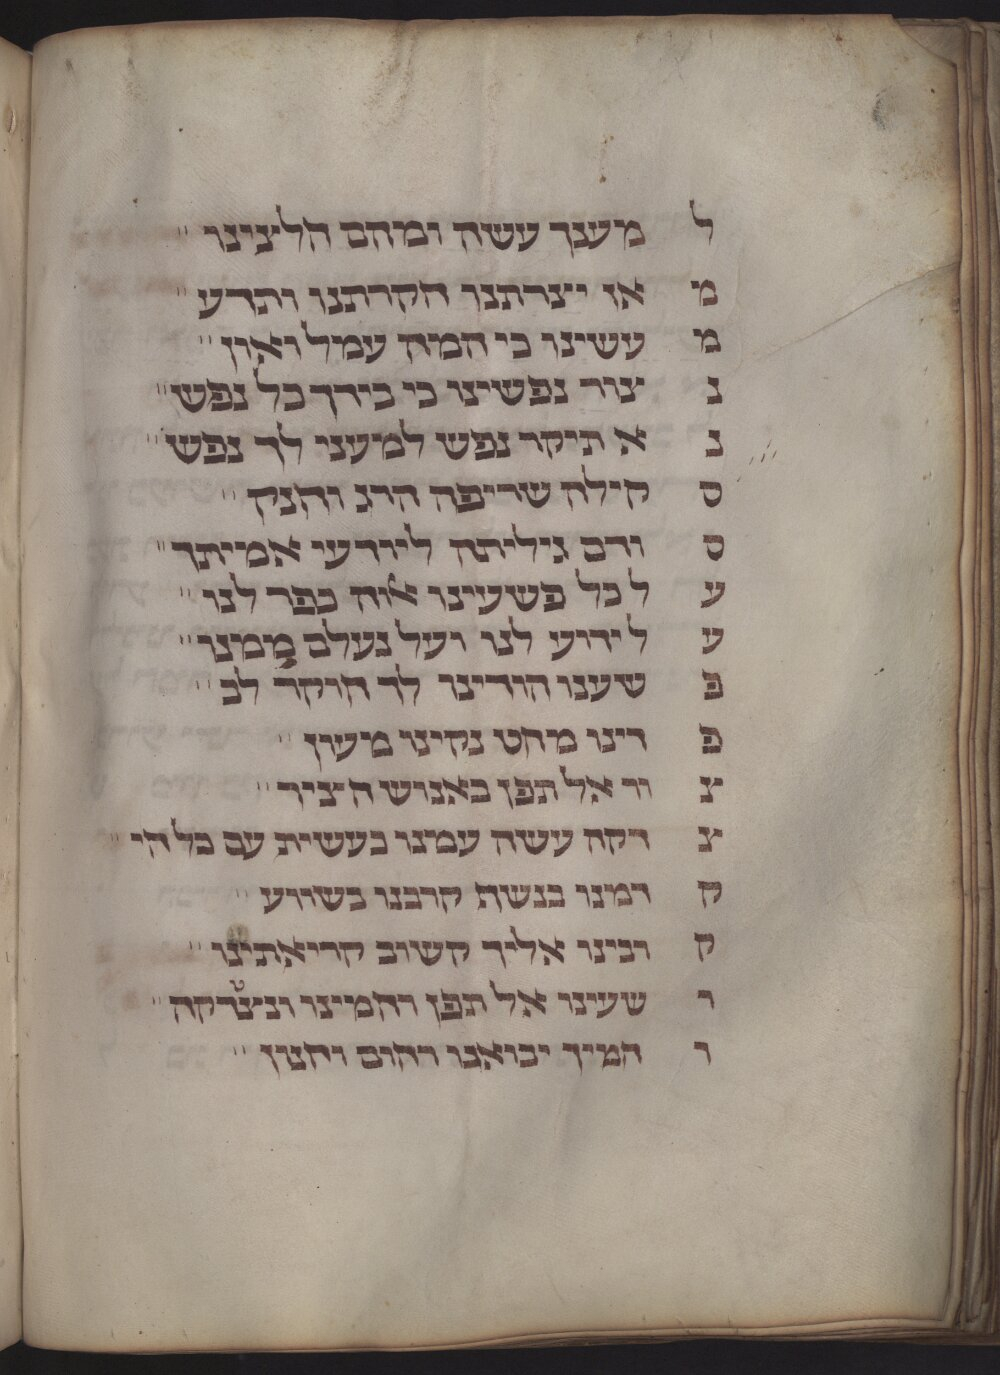 ל מענך עשה ומהם הליצינו
מ אז יצרתנו הקרתנו ותדע
מ עשינו כי המה עמל ואון
נ צור נפשינו כי בידך כל נפש
נ א תיקר נפש למעני לך נפש
ס קילה שריפה הרג וחנק
ס ודם גיליתה ליודעי אמיתך
ע ל כל פשעינו אוה כפר לנו
ע ל ידוע לנו ועל נעלם ממנו
פ שענו הודינו לך חוקר לב
פ דינו מחט נקינו מעון
צ ור אל תפן באנוש חציר
צ דקה עשה עמנו כעשית עם כל חי
ק דמנו בנשת קרבנו בשיוע
ק ובינו אליך קשוב קריאתינו
ר שעינו אל תפן רחמינו וניצדקה
ר חמיך יבואנו רחום וחנון